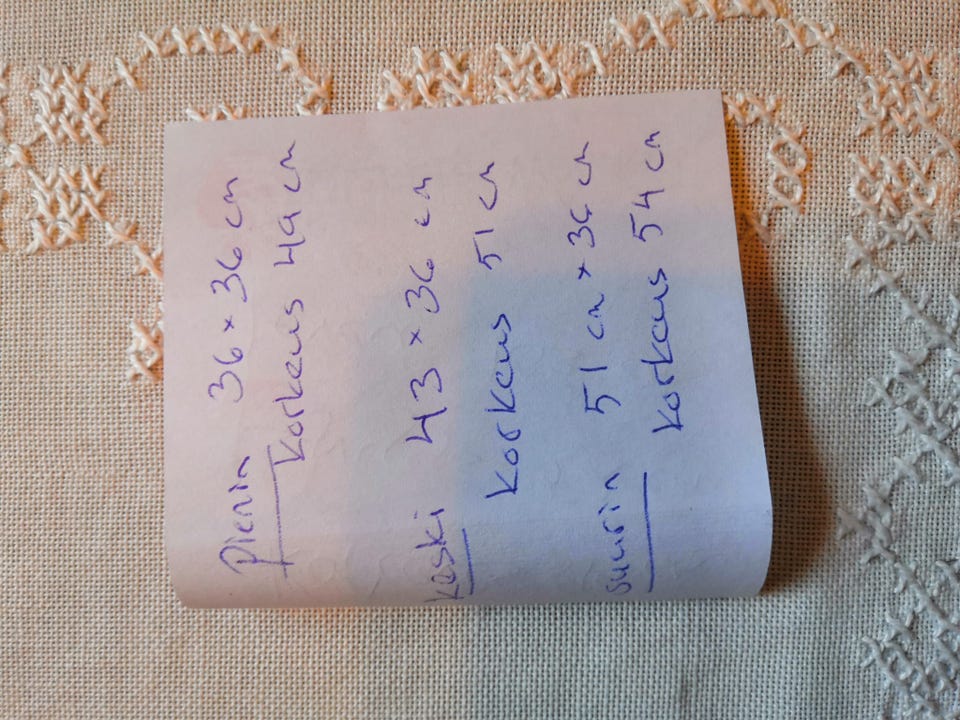 Pienin 36 × 36 cm
Korkeus 49 cm
Keski 43 × 36 cm
Korkeus 51 cm
Suurin 51 cm × 36 cm
Korkeus 54 cm